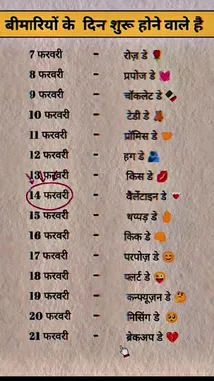 बीमारियों के दिन शुरू होने वाले है
7 फरवरी - रोज़ डे 🌹
8 फरवरी - प्रपोज डे 💓
9 फरवरी - चॉकलेट डे 🍫
10 फरवरी - टेडी डे 🧸
11 फरवरी - प्रॉमिस डे 🤝
12 फरवरी - हग डे 🫂
13 फरवरी - किस डे 💋
14 फरवरी - वैलेंटाइन डे 💘
15 फरवरी - थप्पड़ डे ✋
16 फरवरी - किक डे 👊
17 फरवरी - परपोज़ डे 😊
18 फरवरी - फ्लर्ट डे 😜
19 फरवरी - कन्फ्यूज़न डे 🤔
20 फरवरी - मिसिंग डे 🥺
21 फरवरी - ब्रेकअप डे 💔